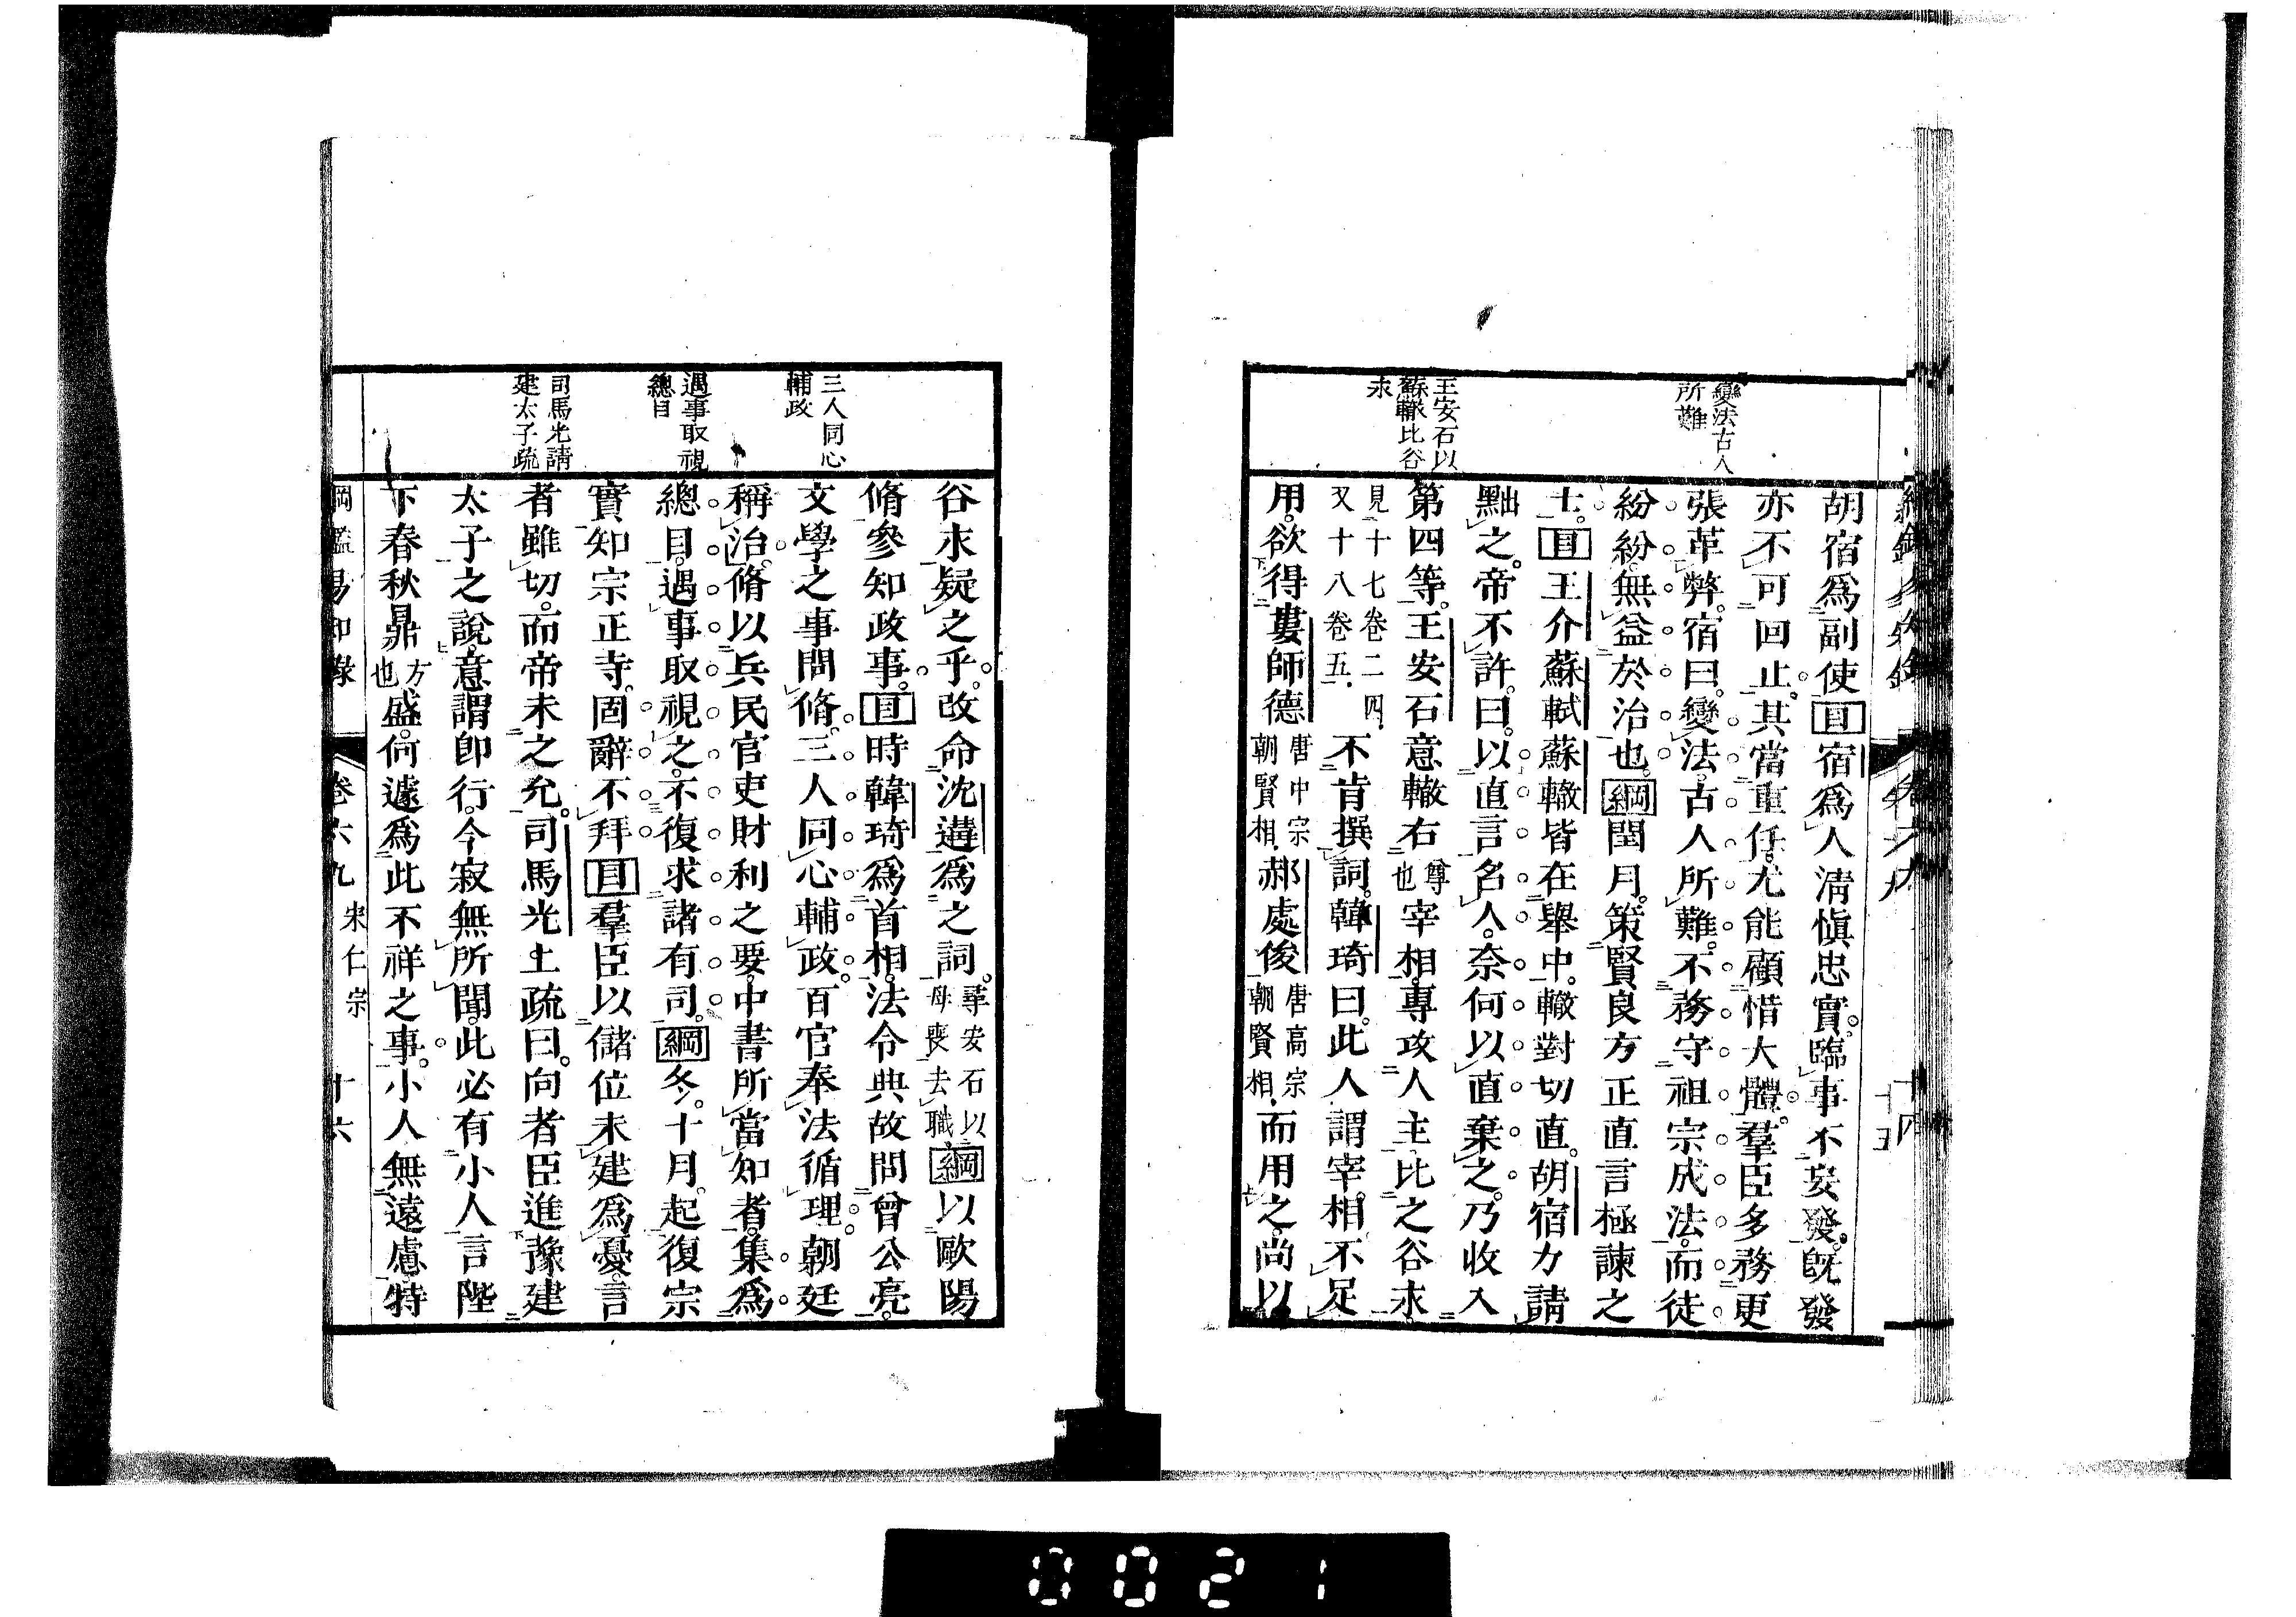 變法古人
所難
王安石以
蘇轍比谷
永
胡宿爲副使目宿爲人淸愼忠實。臨事不妄發。旣發
亦不可回止。其當重任。尤能顧惜大體。羣臣多務更
張革弊。宿曰。變法。古人所難。不務守祖宗成法。而徒
紛紛。無益於治也。綱閏月。策賢良方正直言極諫之
士。目王介蘇軾蘇轍皆在舉中。轍對切直。胡宿力請
黜之。帝不許。曰。以直言名人。奈何以直棄之。乃收入
第四等。王安石意轍右尊也宰相。專攻人主。比之谷永。
見十七卷二四。又十八卷五。不肯撰詞。韓琦曰。此人謂宰相不足
用。欲得婁師德唐中宗朝賢相。郝處俊唐高宗朝賢相。而用之。尚以
三人同心
輔政
遇事取視
總目
司馬光請
建太子疏
谷永疑之乎。改命沈遘爲之詞。尋安石以母喪去職綱以歐陽
脩參知政事。目時韓琦爲首相。法令典故問曾公亮。
文學之事問脩。三人同心輔政。百官奉法循理。朝廷
稱治。脩以兵民官吏財利之要。中書所當知者。集爲
總目。遇事取視之。不復求諸有司。綱冬。十月。起復宗
實知宗正寺。固辭不拜目羣臣以儲位未建爲憂。言
者雖切。而帝未之允。司馬光上疏曰。向者臣進豫建
太子之說。意謂卽行。今寂無所聞。此必有小人言陛
下春秋鼎方也盛。何遽爲此不祥之事。小人無遠慮。特
綱鑑易知錄 卷六九 宋仁宗 十六
0021